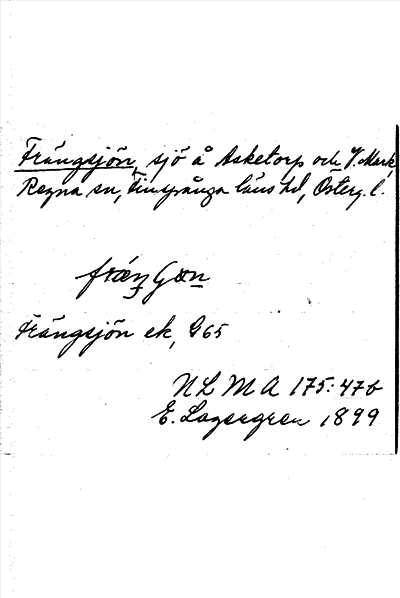 Frängsjön, sjö å Asketorp och V. Mark,
Regna sn, Finspånga läns hd, Österg. l.
Frängsjön ek, G65
NLMA 175:47b
E. Lagergren 1899